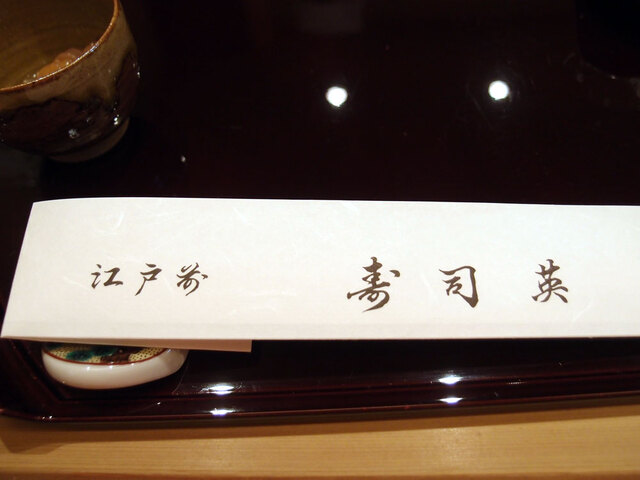 江戸前 寿司英